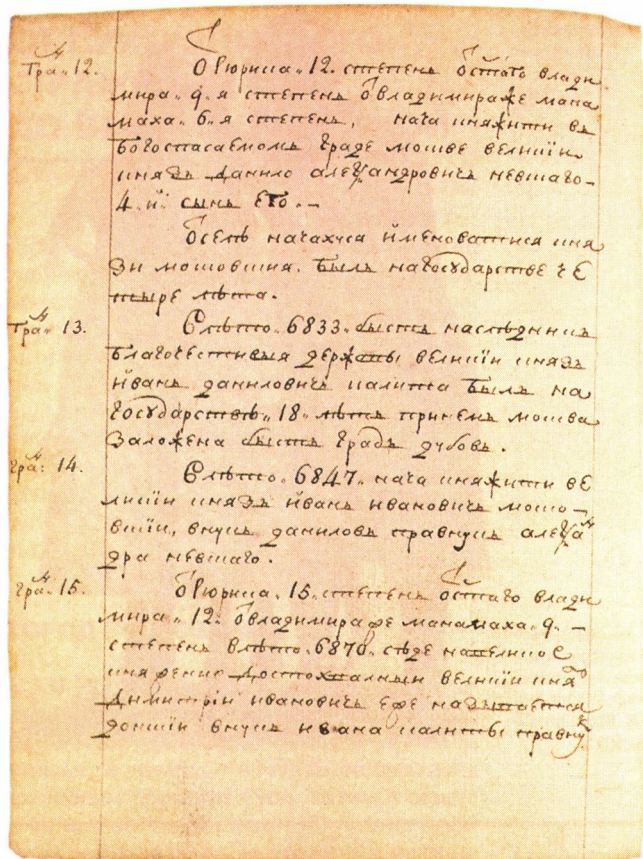 Гра^н 12.
Ѿ Рюрика. 12. степень ѿ с͠таго влади
мира. 9. я степень ѿ владимира же мана
маха. 6. я степень, нача княжити въ
богоспасаемомъ граде москве великіи
князь данило алеѯандровичь невскаго
4. й сынъ его. —
Ѿселѣ начахуся именоватися кня
зи московския. былъ на государстве че
тыре лѣта.
Гра^н 13.
В лѣто. 6833. бысть наследникъ
благочестивыя державы великіи князь
иванъ даниловичь калита былъ на
государствѣ. 18. лѣтъ при немъ москва
заложена бысть градъ дубовъ.
Гра^н 14.
В лѣто. 6847. нача княжити ве
ликіи князь иванъ ивановичь моско-
вскіи, внукъ даниловъ правнукъ алеѯа^н
дра невскаго.
Гра^н 15.
ѿ Рюрика. 15. степень ѿ с͠таго влади
мира. 12. ѿ владимира же манамаха. 9. —
степень в лѣто. 6870. сѣде на великое
княжение достохвалныи великіи кня^з
димитріи ивановичь еже называется
донскіи внукъ ивана калиты правну^к